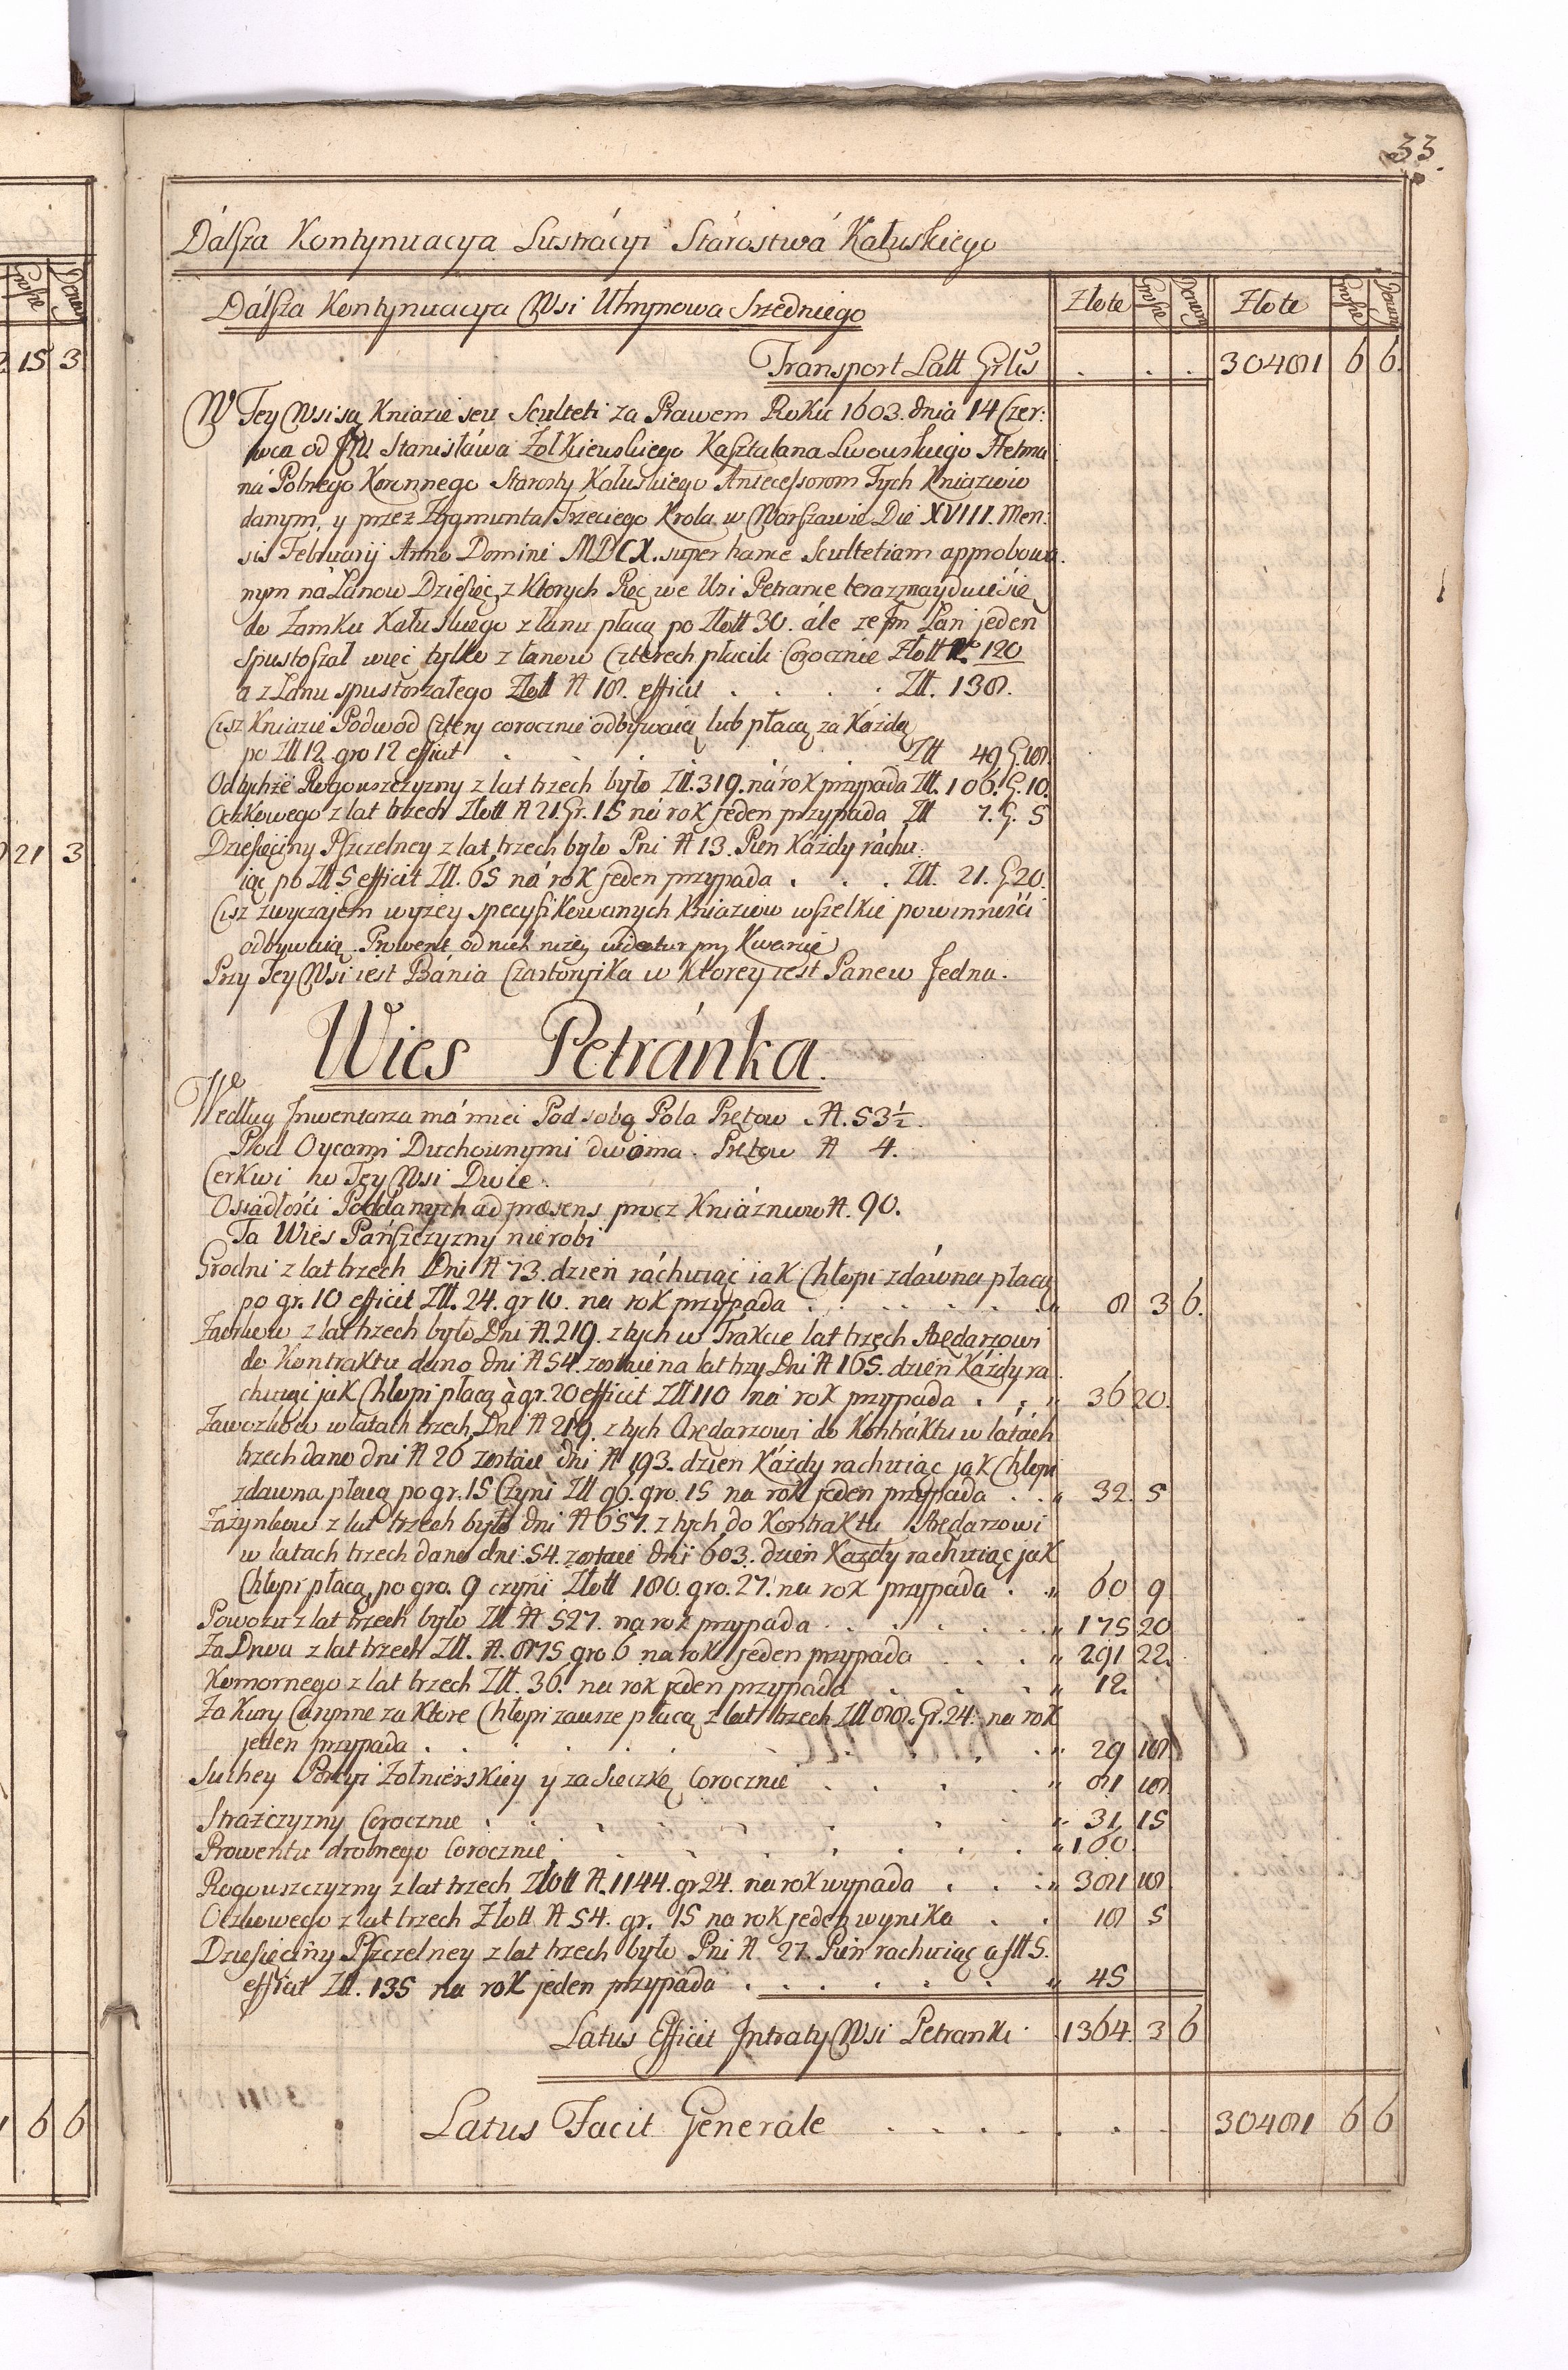 33.
Dálsza Kontynuacya Lustrácyi Stárostwá Kałuskiego
Dálsza Kontynuacya Wsi Uhrynowa Srzedniego
Złote Grosze Denary Złote Grosze Denary
Transport Latt Grlis . . . 30481 6 6.
W Tey Wsi są Kniazie seu Sculteti za Prawem Roku 1603. dnia 14 Czer:
wca od JW Stanisława Żołkiewskiego Kasztalana Lwowskiego Hetma
ná Polnego Koronnego Starosty Kałuskiego Antecessorom Tych Kniaziów
danym, y przez Zygmunta Trzeciego Krola w Warszawie Die XVIII. Men:
sis Februarij Anno Domini MDCX. super hance Scultetiam approbowa
nym ná Łanow Dziesięć, z Ktorych Pięć we Wsi Petrance teraz znayduie się
do Zamku Kałuskiego z łanu płacą po Złott 30. ále ze Łan jeden
spustoszał więc tylko z łanow Czterech płacili Corocznie Złott 120
a z Łanu spustoszałego Złott N 18. efficit . . . . Złł. 138.
Ciż Kniazie Podwod Cztery corocznie odbywaią lub płacą za Kázdą
po Złł 12 gro 12 efficit . . . . . Złł 49 G. 18.
Od tychże Rogowszczyzny z lat trzech było Złł. 319. ná rok przypada Złł. 106. G. 10.
Oczkowego z lat trzech Złott N 21. Gr. 15 ná rok jeden przypada Złł 7. G. 5
Dziesięciny Pszczelney z lat trzech było Pni N 13. Pien Kázdy ráchu:
iąc po Złł 5 efficit Złł. 65 ná rok jeden przypada . . . Złł. 21. G 20.
Ciż zwyczajem wyżey specyfikowanych Kniaziow wszelkie powinności
odbywaią. Prowent od nich niżey videatur przy Kwarcie
Przy Tey Wsi iest Bánia Czartoryska w Ktorey iest Panew Jedna.
Wies Petránka.
Według Inwentarza má mieć Pod sobą Pola Prętow . N. 53½.
Pod Oycami Duchownymi dwoma . Prętow N 4.
Cerkwi w Tey Wsi Dwie.
Osiadłości Poddanych ad præsens procz Kniáznuw N. 90.
Ta Wies Pańszczyzny nie robi
Grodni z lat trzech Dni N 73. dzien ráchuiąc iak Chłopi zdáwna płacą
po gr. 10 efficit Złł. 24. gr 10. na rok przypada . . . . . . „ 8 3 6.
Zaciow z lat trzech było Dni N. 219. z tych w Trakcie lat trzech Arędarzowi
do Kontraktu dano dni N 54. zostaie na lat trzy Dni N 165. dzien Kázdy ra
chuiąc jak Chłopi płacą à gr. 20 efficit Złł 110 ná rok przypada . . „ 36 20.
Zawozkow w latach trzech Dni N 219. z tych Arędarzowi do Kontráktu w látách
trzech dano dni N 26 zostaie dni N 193. dzien Kázdy rachuiąc jak Chłopi
zdawna płacą po gr. 15 Czyni Złł 96. gro. 15 na rok jeden przypada . . „ 32. 5
Zazynkow z lat trzech było dni N 657. z tych do Kontraktu Arędarzowi
w latach trzech dano dni. 54. zostaie dni 603. dzien Kazdy rachuiąc jak
Chłopi płacą po gro. 9 czyni Złott 180. gro. 27. na rok przypada . „ 60 9
Powozu z lat trzech było Złł N 527. na rok przypada . . . . . . „ 175 20
Za Drwa z lat trzech Złł. N. 875 gro 6 na rok jeden przypada . . . „ 291 22.
Komornego z lat trzech Złł. 36. na rok jeden przypada . . . . „ 12
Za Kury Czynne za Ktore Chłopi zawsze płacą z lat trzech Złł 88. Gr. 24. na rok
jeden przypada . . . . . . . . . „ 29 18
Suchey Porcyi Żołnierskiey y za Sieczkę Corocznie . . . . „ 81 18.
Strażczyzny Corocznie . . . . . . „ 31 15
Prowentu drobnego Corocznie . . . . . . „ 160.
Rogowszczyzny z lat trzech Złott N. 1144. gr 24. na rok wypada . . . „ 381 18.
Oczkowego z lat trzech Złott N 54. gr. 15 na rok jeden wynika . . 18 5
Dziesięciny Pszczelney z lat trzech było Pni N 27. Pień rachuiąc a złł 5.
efficit Złł. 135 na rok jeden przypada . . . . . . „ 45
Latus Efficit Intraty Wsi Petranki . 1364. 3 6
Latus Facit Generale . . . . . . . 30481 6 6